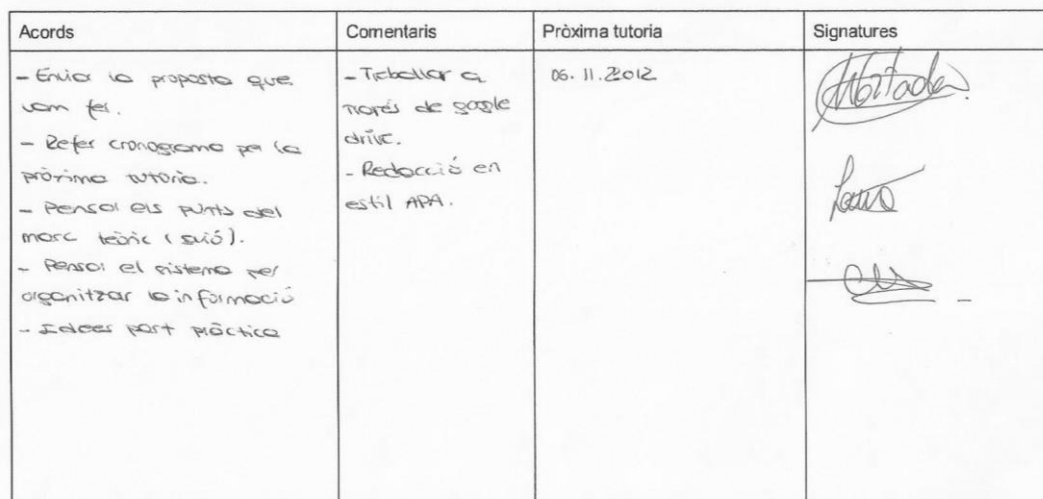 Acords
Comentaris
Pròxima tutoria
Signatures
- Enviar la proposta que
vam fer.
- Refer cronograma per la
pròxima tutoria.
- Pensar els punts del
marc teòric (guió).
- Pensar el sistema per
organitzar la informació
- Idees part pràctica
- Treballar a
través de google
drive.
- Redacció en
estil APA.
06.11.2012
Laura